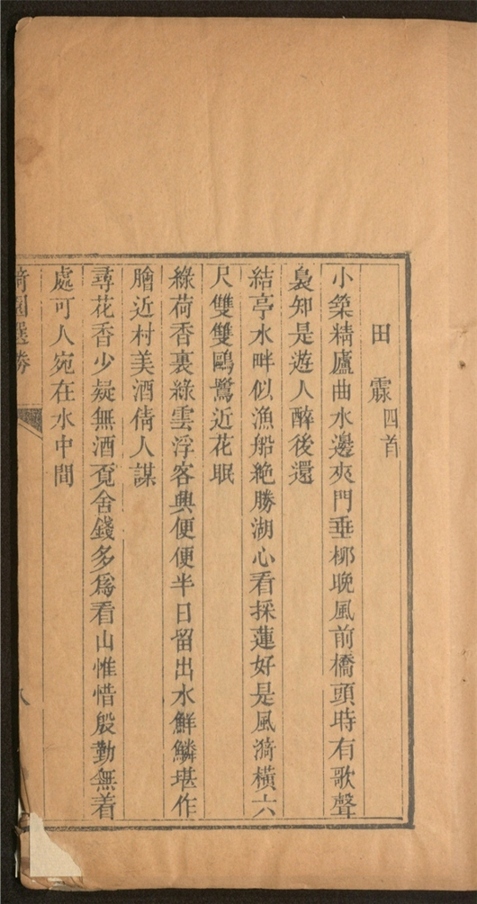 田霡四首
小築精廬曲水邊夾門垂柳晚風前橋頭時有歌聲
裊知是遊人醉後還
結亭水畔似漁船絶勝湖心看採蓮好是風漪橫六
尺雙雙鷗鷺近花眠
綠荷香裏綠雲浮客興便便半日留出水鮮鱗堪作
膾近村美酒倩人謀
尋花香少疑無酒覔舍錢多爲看山惟惜殷勤無着
處可人宛在水中間